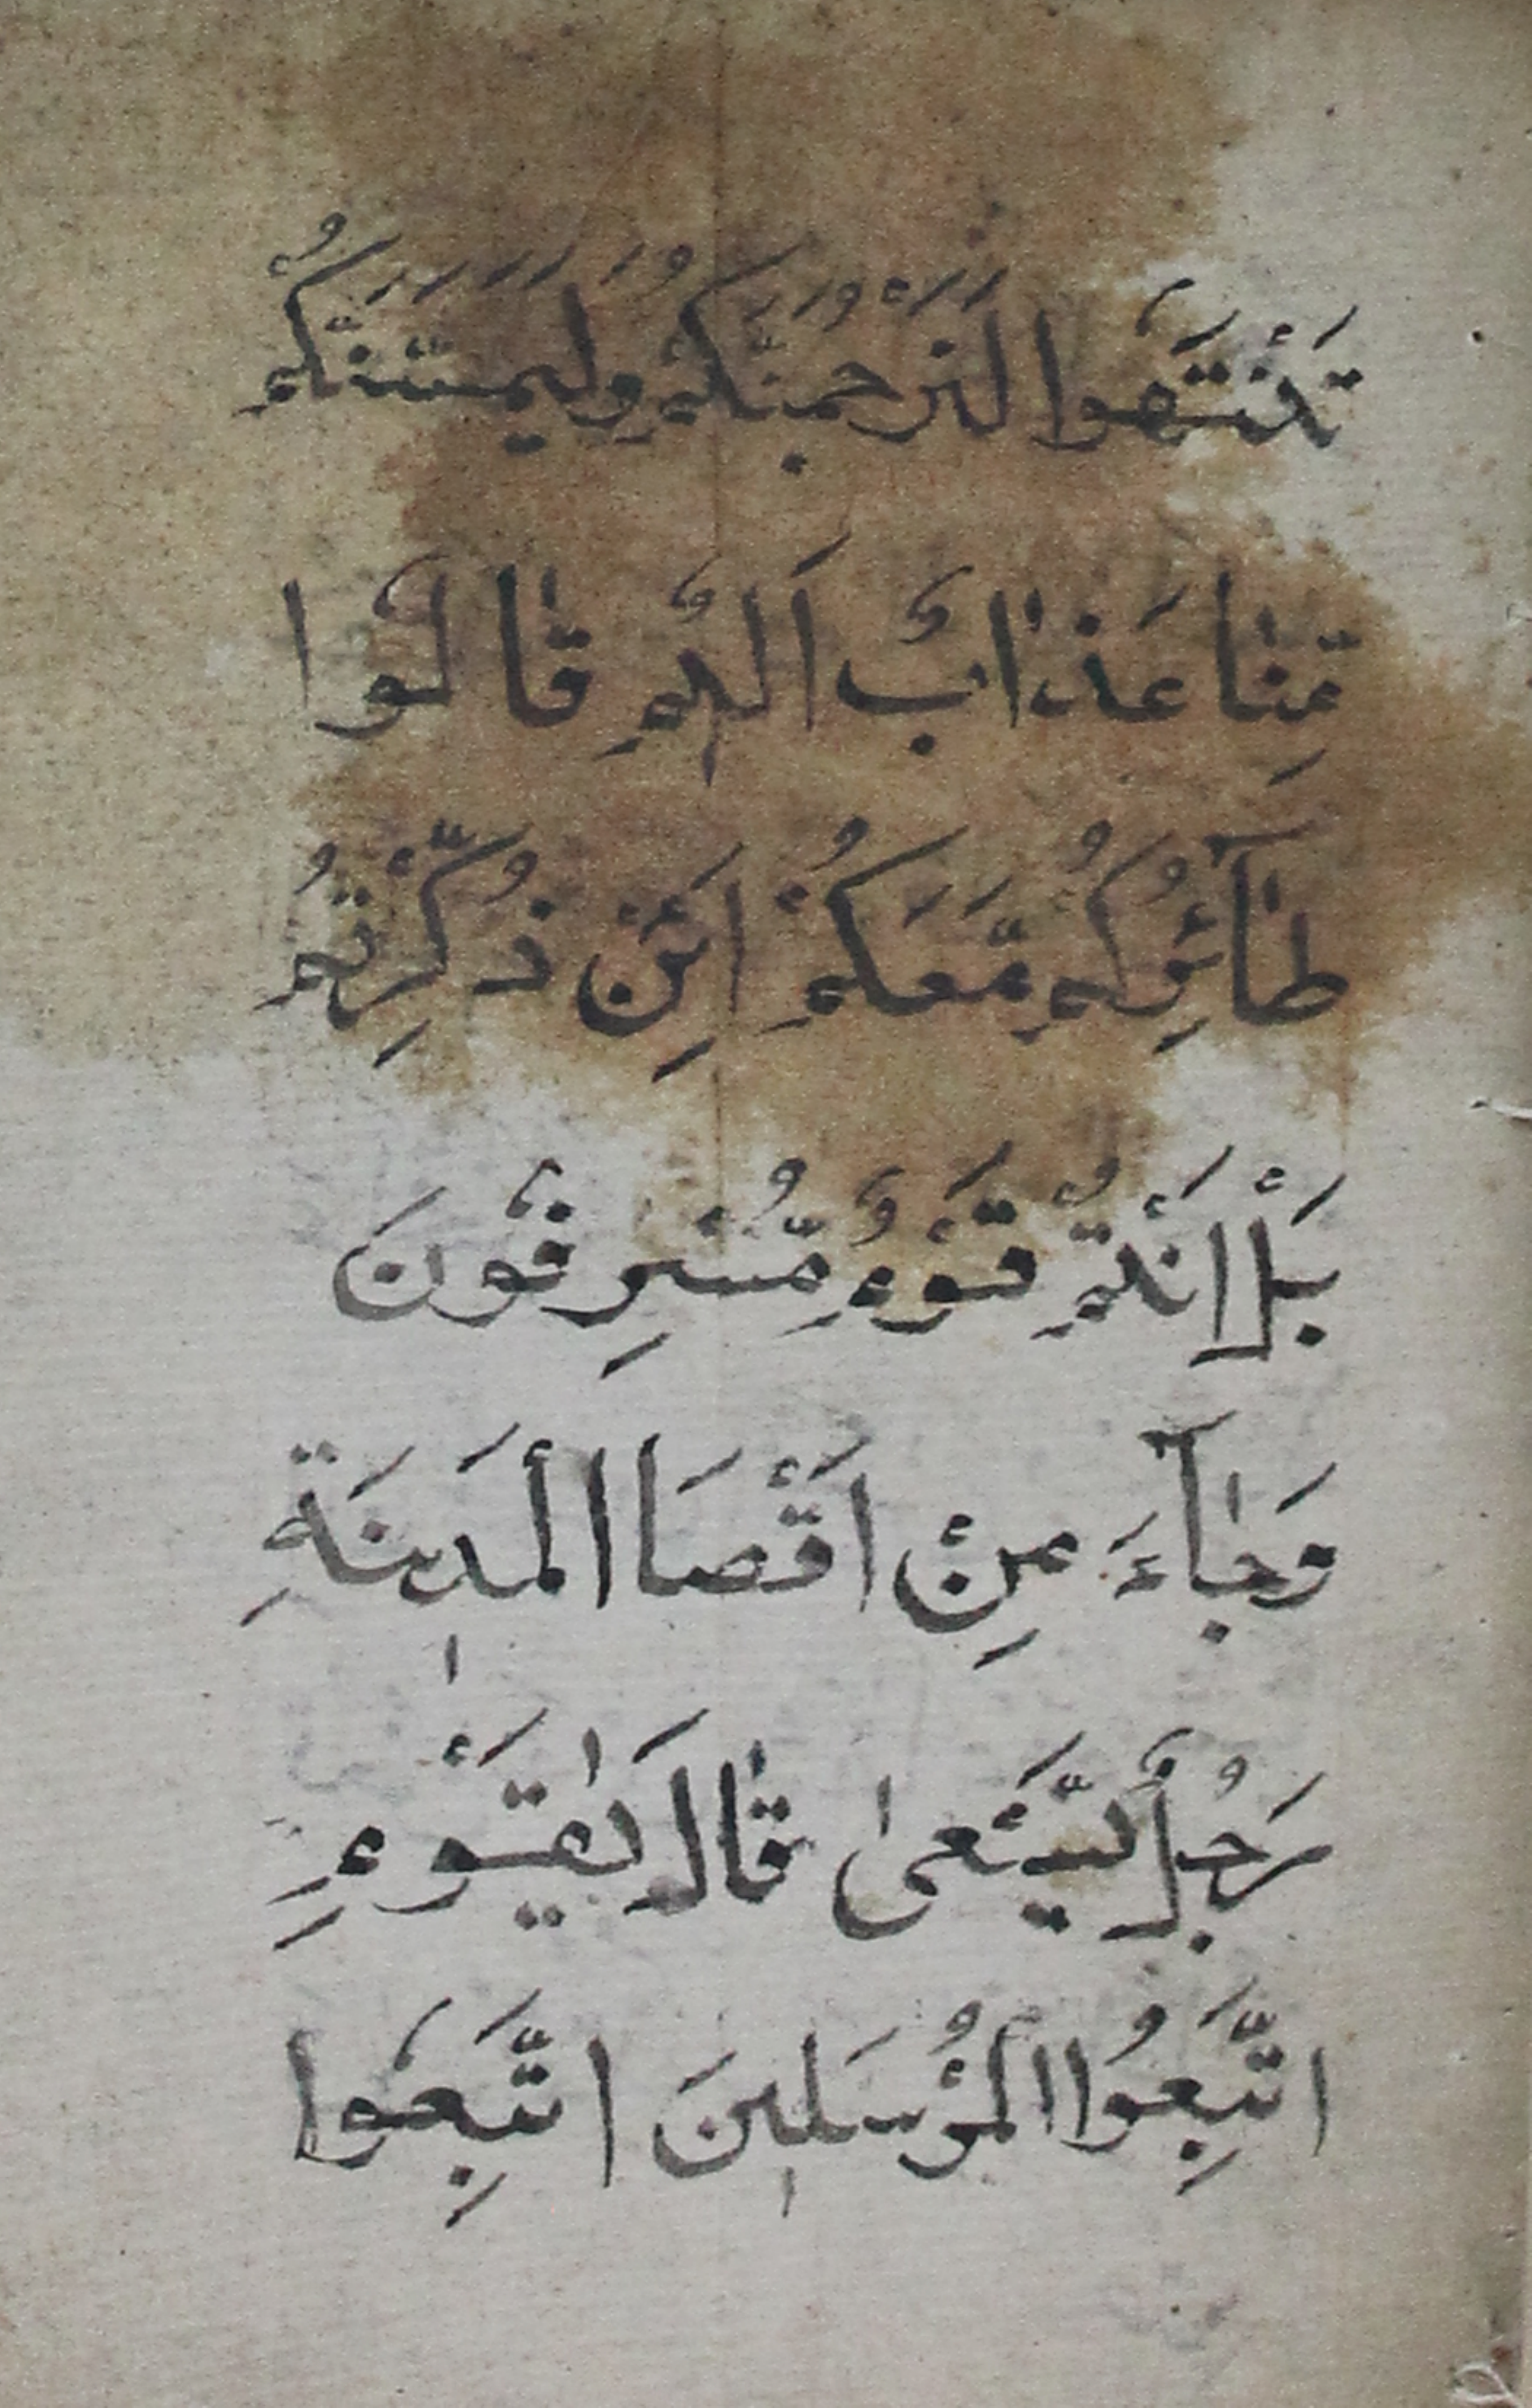 تَنْتَهُوْا لَنَرْجُمَنَّكُمْ وَلَيَمَسَّنَّكُمْ
مِّنّٰا عَذٰابٌ اَلٖيمٌ قٰالُوْا
طٰآئِرُكُمْ مَّعَكُمْ اَئِنْ ذُكِّرْتُمْ
بَلْ اَنْتُمْ قَوْمٌ مُّسْرِفُوْنَ
وَجٰآءَ مِنْ اَقْصَا الْمَدٖينَةِ
رَجُلٌ يَّسْعىٰ قٰالَ يٰقَوْمِ
اتَّبِعُوا الْمُرْسَلٖينَ اتَّبِعُوْا